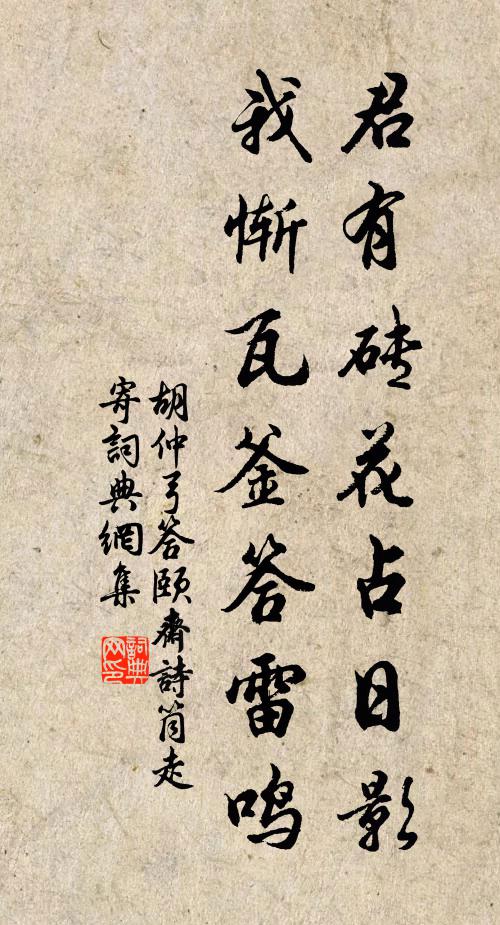 君有砖花占日影
我惭瓦釜答雷鸣
胡仲弓答颐斋詩筒走
寄詞典網集
詞典网印